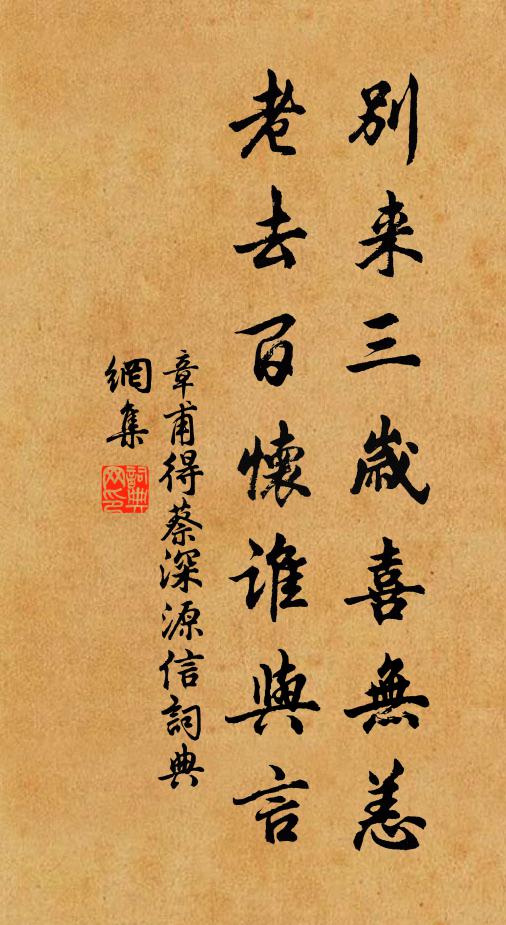 別来三歲喜無恙
老去百懷誰與言
章甫得蔡深源信詞典
網集
詞典
网印